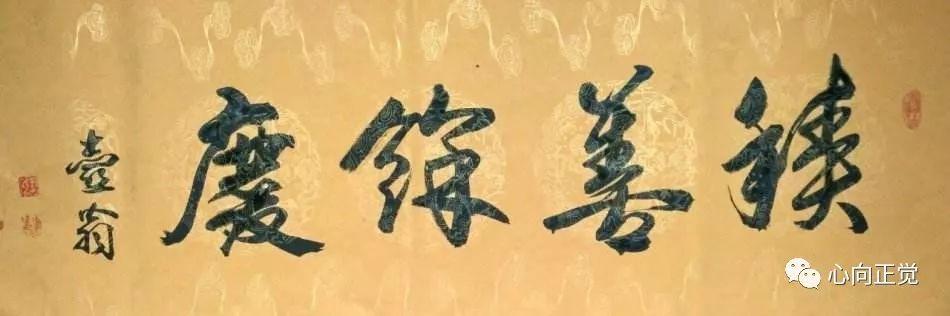 積善餘慶
壺翁
心向正觉